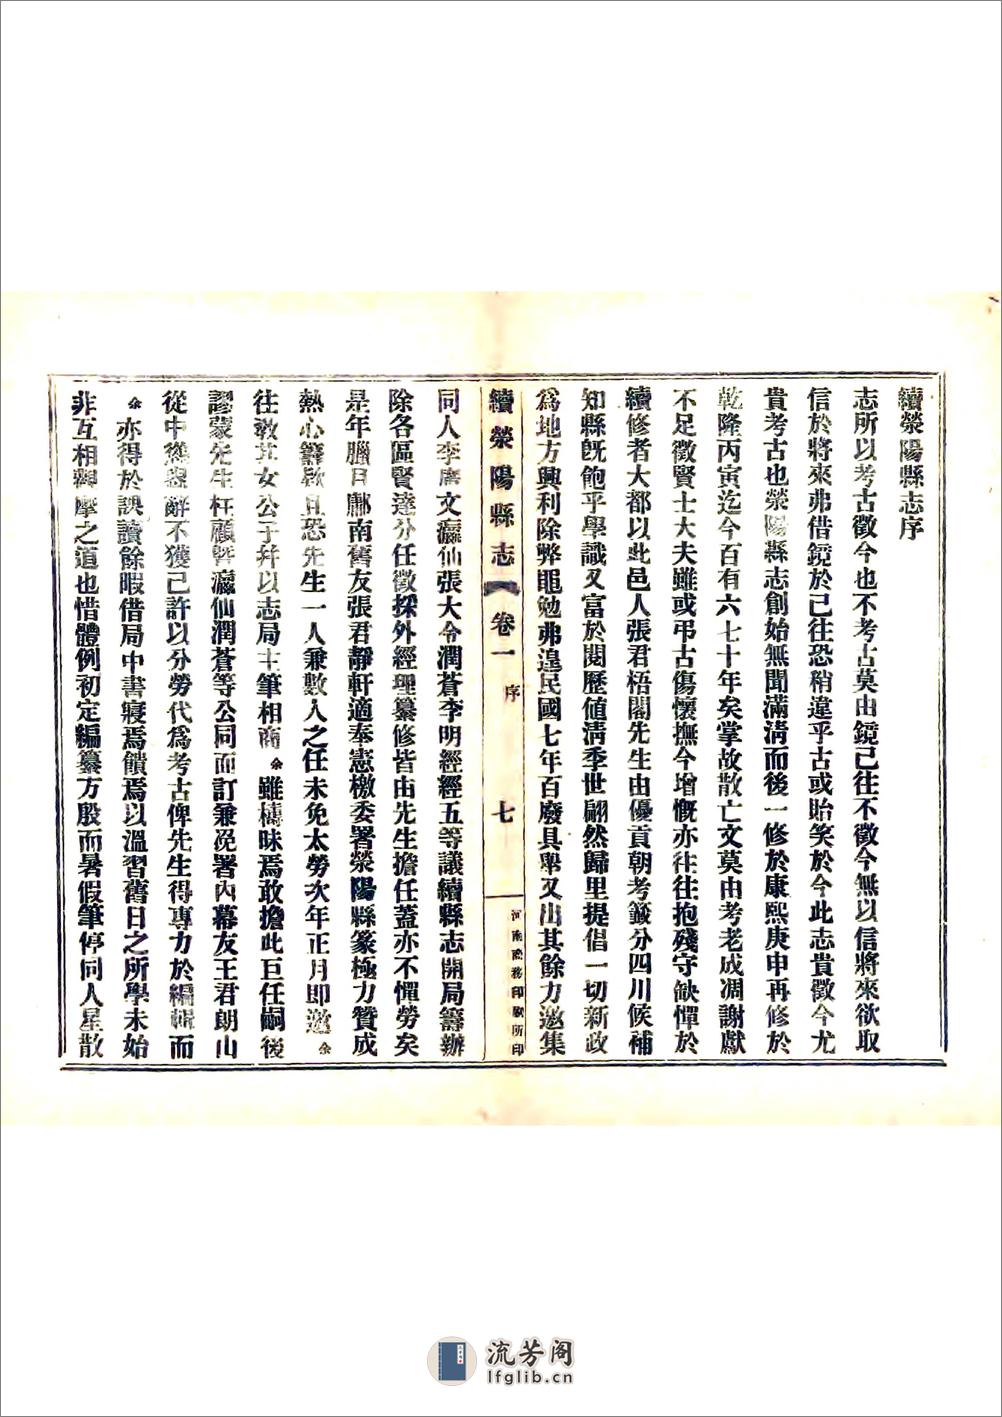 續滎陽縣志序
志所以考古徵今也不考古莫由鏡已往不徵今無以信將來欲取
信於將來弗借鏡於已往恐稍違乎古或貽笑於今此志貴徵今尤
貴考古也滎陽縣志創始無聞滿清而後一修於康熙庚申再修於
乾隆丙寅迄今百有六七十年矣掌故散亡文莫由考老成凋謝獻
不足徵賢士大夫雖或弔古傷懷撫今增慨亦往往抱殘守缺憚於
續修者大都以此邑人張君梧閣先生由優貢朝考籤分四川候補
知縣既飽乎學識又富於閱歷値淸季世翩然歸里提倡一切新政
爲地方興利除弊黽勉弗遑民國七年百廢具舉又出其餘力邀集
續滎陽縣志 卷一 序 七 河南商務印刷所印
同人李廣文瀛仙張大令潤蒼李明經經五等議續縣志開局籌辦
除各區賢達分任徵採外經理纂修皆由先生擔任蓋亦不憚勞矣
是年臘日鄘南舊友張君靜軒適奉憲檄委署滎陽縣篆極力贊成
熱心籌款且恐先生一人兼數人之任未免太勞次年正月即邀余
往敎其女公子幷以志局主筆相商余雖檮昧焉敢擔此巨任嗣後
謬蒙先生枉顧曁瀛仙潤蒼等公同面訂兼免署內幕友王君朗山
從中慫恿辭不獲已許以分勞代爲考古俾先生得專力於編輯而
余亦得於課讀餘暇借局中書寢焉饋焉以溫習舊日之所學未始
非互相觀摩之道也惜體例初定編纂方殷而暑假筆停同人星散
流芳阁
lfglib.cn